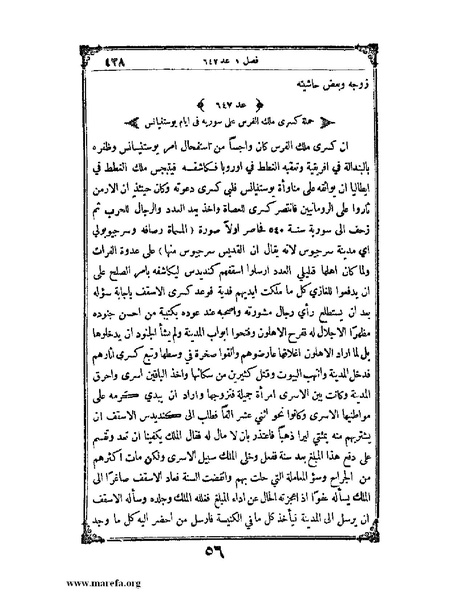 فصل ١ عد ٦٤٧ ٤٣٨
زوجه وبعض حاشيته
﴿ عد ٦٤٧ ﴾
﴿ حملة كسرى ملك الفرس على سورية فى ايام يوستنيانس ﴾
ان كسرى ملك الفرس كان واجساً من استفحال امر يوستنيانس وظفره
بالبندالة في افريقية وتعقبه الغطط في اوروبا فكاشفه فيتجس ملك الغطط في
ايطاليا ان يوافقه على مناوأة يوستنيانس فلبي كسرى دعوته وكان حينئذ ان الارمن
ثاروا على الرومانيين فانتصر كسرى للعصاة واخذ يعد العدد والرجال للحرب ثم
زحف الى سورية سنة ٥٤٠ فحاصر اولاً صورة ( المسماة رصافه وسرجيوبولي
اي مدينة سرجيوس لانه يقال ان القديس سرجيوس منها ) على عدوة الفرات
ولما كان اهلها قليلي العدد ارسلوا اسقفهم كنديدس ليكاشفه بامر الصلح على
ان يدفعوا للغازي كل ما ملكت ايديهم فدية فوعد كسرى الاسقف باجابة سؤله
بعد ان يستطلع رأي رجال مشورته واصحبه عند عوده بكتيبة من احسن جنوده
مظهرًا الاجلال له ففرح الاهلون وفتحوا ابواب المدينة ولم يشأ الجنود ان يدخلوها
بل لما اراد الاهلون اغلاقها عارضوهم والقوا صخرة في وسطها وتبع كسرى اثارهم
فدخل المدينة وانتهب البيوت وقتل كثيرين من سكانها واخذ الباقين اسرى واحرق
المدينة وكانت بين الاسرى امرأة جميلة فتزوجها واراد ان يبدي تكرمه على
مواطنيها الاسرى وكانوا نحو اثنى عشر الفاً فطلب الى كنديدس الاسقف ان
يشتريهم منه بمئتي ليرا ذهباً فاعتذر بان لا مال له فقال الملك يكفينا ان تعد وتقسم
على دفع هذا المبلغ بعد سنة ففعل وخلى الملك سبيل الاسرى ولكن مات اكثرهم
من الجراح وسؤ المعاملة التي حلت بهم وانقضت السنة فعاد الاسقف صاغرًا الى
الملك يسأله عفوًا اذ اعجزته الحال عن اداء المبلغ فغله الملك وجلده وسأله الاسقف
ان يرسل الى المدينة فيأخذ كل ما في الكنيسة فارسل من احضر اليه كل ما وجد
٥٦
www.marefa.org